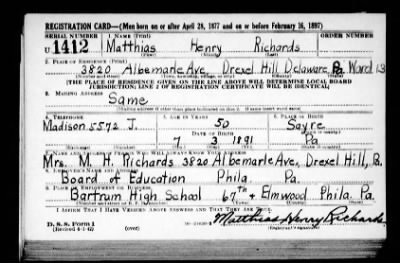 REGISTRATION CARD—(Men born on or after April 28, 1877 and on or before February 16, 1897)
SERIAL NUMBER 1. NAME (Print) ORDER NUMBER
U 1412 Matthias Henry Richards
2. PLACE OF RESIDENCE (Print)
3820 Albemarle Ave. Drexel Hill Delaware Pa. Ward 13
[THE PLACE OF RESIDENCE GIVEN ON THE LINE ABOVE WILL DETERMINE LOCAL BOARD
JURISDICTION; LINE 2 OF REGISTRATION CERTIFICATE WILL BE IDENTICAL]
3. MAILING ADDRESS
Same
4. TELEPHONE 5. AGE IN YEARS 6. PLACE OF BIRTH
Madison 5572 J. 50 Sayre
DATE OF BIRTH
7 3 1891 Pa
7. NAME AND ADDRESS OF PERSON WHO WILL ALWAYS KNOW YOUR ADDRESS
Mrs. M. H. Richards 3820 Albemarle Ave, Drexel Hill, P.
8. EMPLOYER'S NAME AND ADDRESS
Board of Education Phila. Pa.
9. PLACE OF EMPLOYMENT OR BUSINESS
Bartram High School 67th + Elmwood Phila. Pa.
I AFFIRM THAT I HAVE VERIFIED ABOVE ANSWERS AND THAT THEY ARE TRUE.
D. S. S. Form 1
(Revised 4-1-42) (over)
Matthias Henry Richards